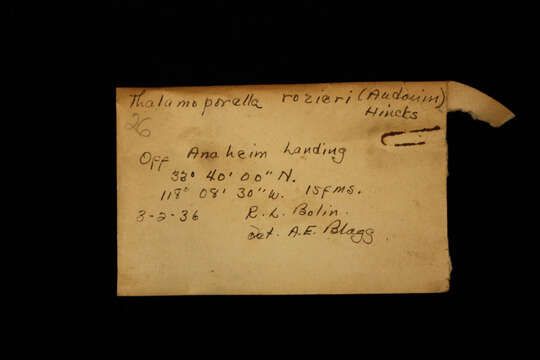 Thalamoporella rozieri (Audouin)
Hincks
26
Off Anaheim Landing
33° 40' 00" N.
118° 08' 30" W. 15fms.
3-2-36 R. L. Bolin.
det. A.E. Blagg